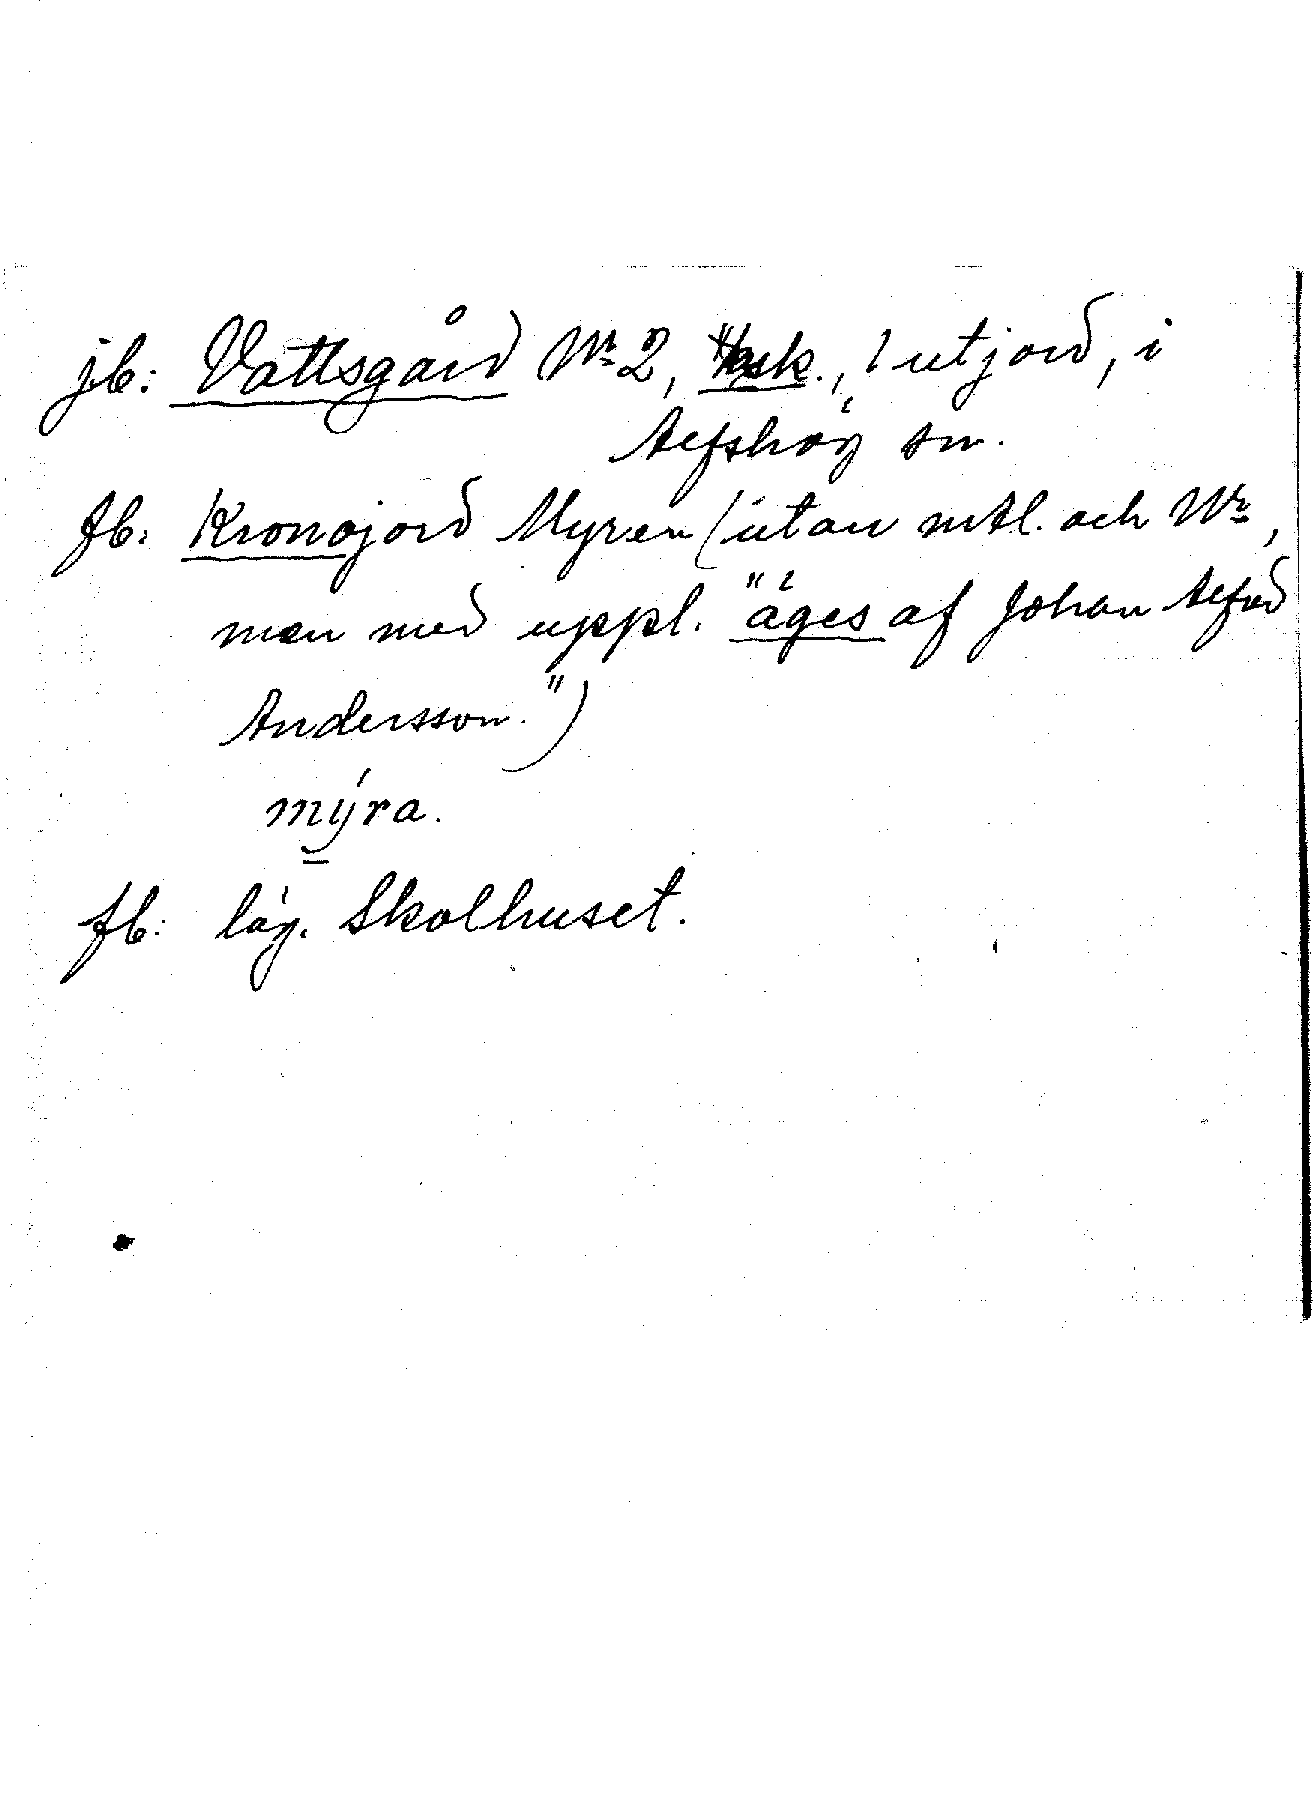 jb: Vattsgård Nr 2, sk., 1 utjord, i
Alfshög sn.
fb: Kronojord Myren (utan mtl. och Nr,
men med uppl. "äges af Johan Alfred
Andersson.")
mýra.
fb: läg. Skolhuset.